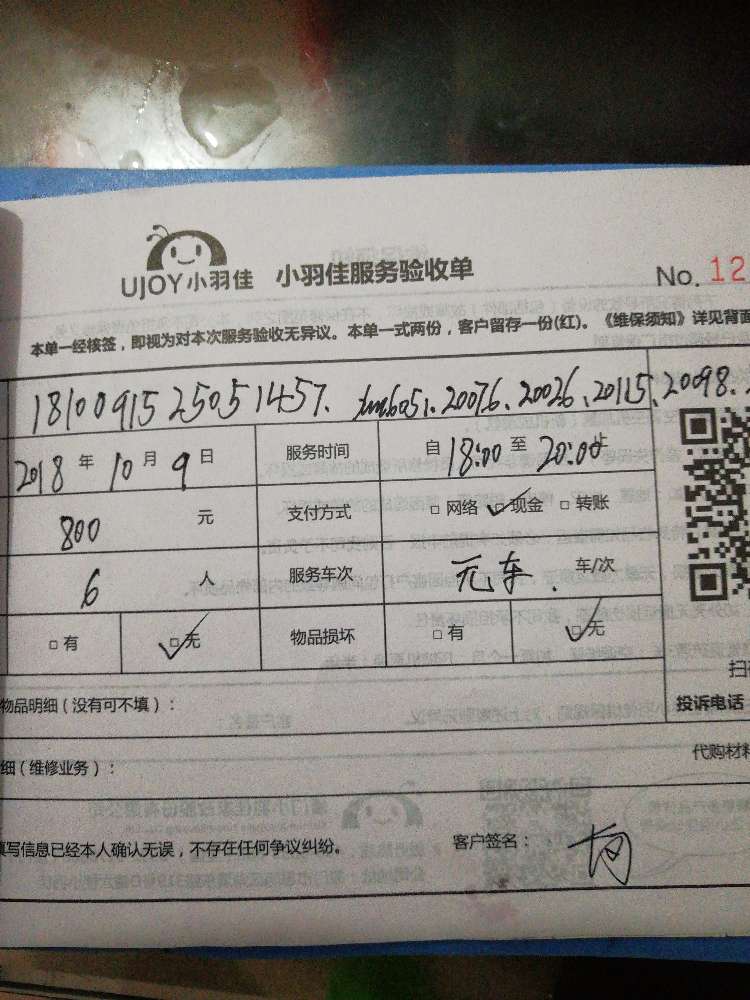 UJOY小羽佳 小羽佳服务验收单 No. 12
本单一经核签，即视为对本次服务验收无异议。本单一式两份，客户留存一份(红)。《维保须知》详见背面
1810091525051457. 20076、20026、20115、20098、
2018 年 10 月 9 日 服务时间 自 18:00 至 20:00止
800 元 支付方式 □ 网络 ☑ 现金 □ 转账
6 人 服务车次 元车. 车/次
□ 有 ☑ 无 物品损坏 □ 有 ☑ 无
物品明细（没有可不填）：
投诉电话
细（维修业务）：
代购材料
填写信息已经本人确认无误，不存在任何争议纠纷。 客户签名：